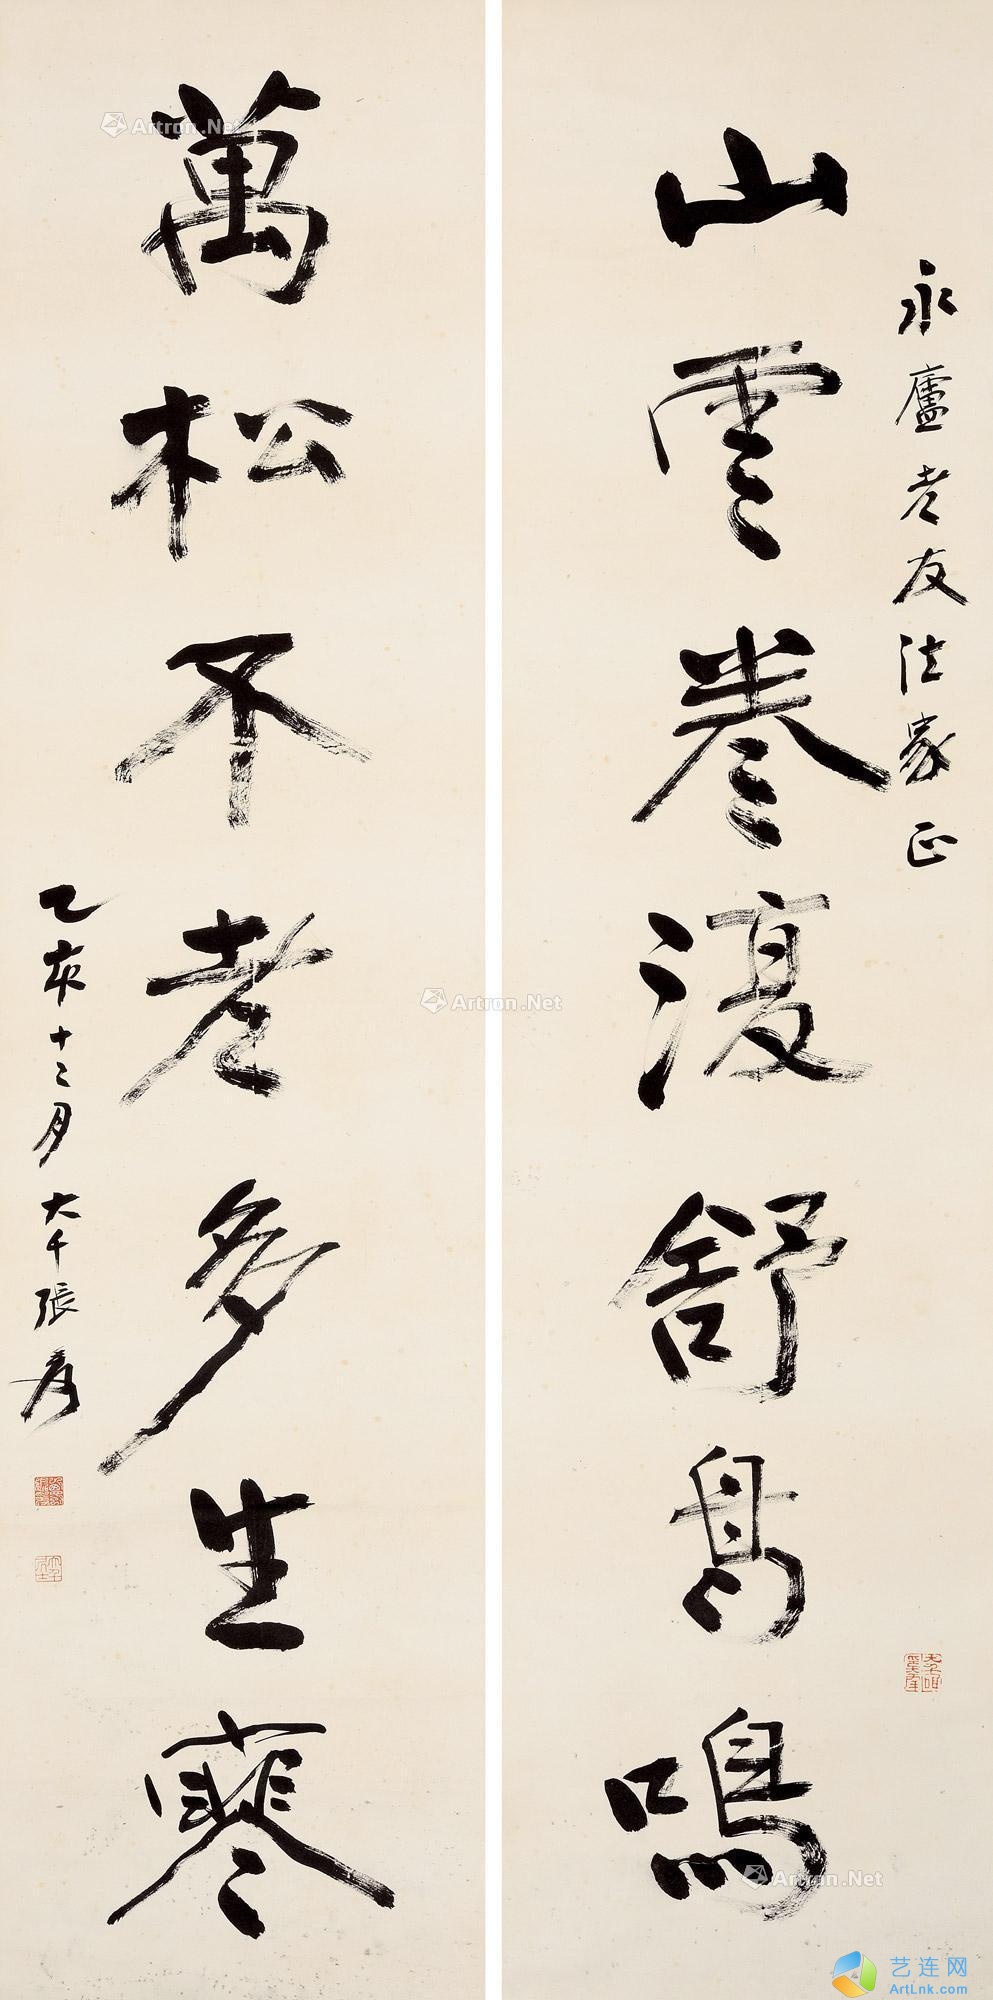 永廬老友法家正
山雲卷復舒高鳴
萬松不老多生寒
乙亥十二月大千張爰
Artron.Net
Artron.Net
Artron.Net
艺连网
ArtLnk.com